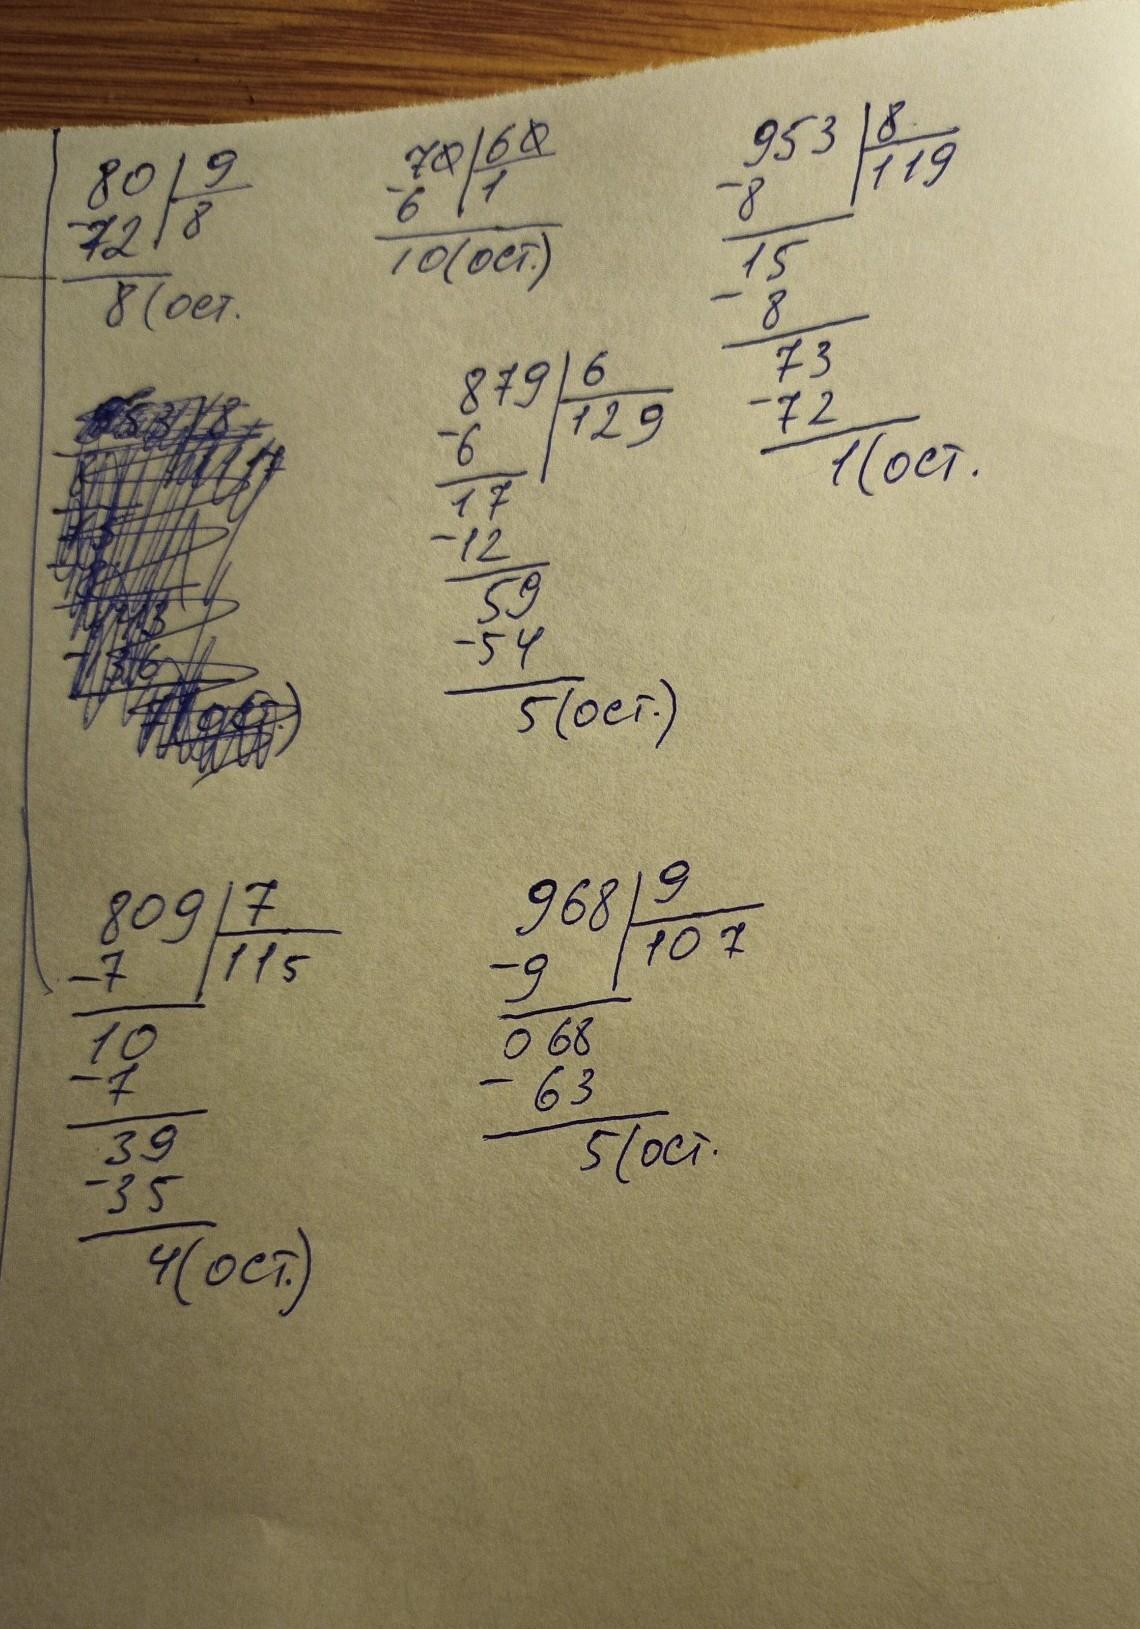 80 | 9
-72 | 8
8(ост.
70 | 60
-6 | 1
10(ост.)
953 | 8
-8 | 119
15
- 8
73
-72
1(ост.
879 | 6
-6 | 129
17
-12
59
-54
5(ост.)
809 | 7
-7 | 115
10
-7
39
-35
4(ост.)
968 | 9
-9 | 107
068
- 63
5(ост.